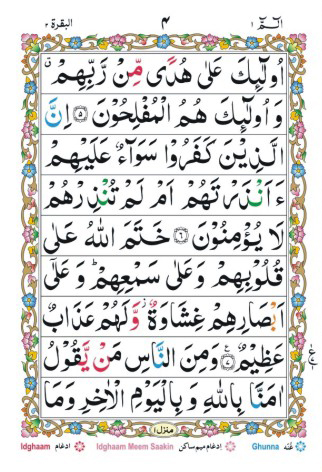 الٓمّٓ ١ ٤ البقرة ٢
اُولٰٓئِكَ عَلٰى هُدًى مِّنْ رَّبِّهِمْ ۙ
وَ اُولٰٓئِكَ هُمُ الْمُفْلِحُوْنَ ۝٥ اِنَّ
الَّذِيْنَ كَفَرُوْا سَوَآءٌ عَلَيْهِمْ
ءَاَنْذَرْتَهُمْ اَمْ لَمْ تُنْذِرْهُمْ
لَا يُؤْمِنُوْنَ ۝٦ خَتَمَ اللّٰهُ عَلٰى
قُلُوْبِهِمْ وَعَلٰى سَمْعِهِمْ ؕ وَ عَلٰٓى
اَبْصَارِهِمْ غِشَاوَةٌ ز وَّلَهُمْ عَذَابٌ
عَظِيْمٌ ۝٧ وَمِنَ النَّاسِ مَنْ يَّقُوْلُ
اٰمَنَّا بِاللّٰهِ وَ بِالْيَوْمِ الْاٰخِرِ وَمَا
منزل ١
Idghaam ادغام Idghaam Meem Saakin ادغام میم ساکن Ghunna غنّه